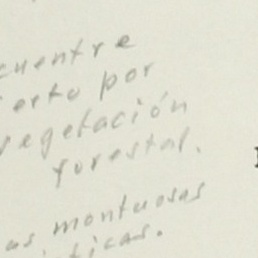 cuentre
erto por
vegetación
forestal.
as montuosas
ticas.